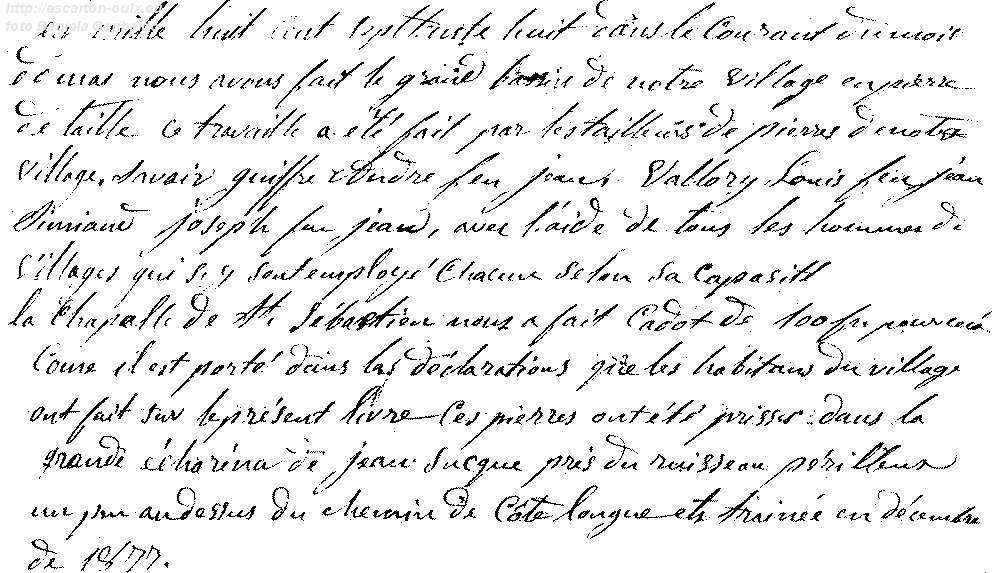 http://escarton-oulx.eu
foto Daniela Garibaldo
En mille huit cent septtente huit dans le Courant du mois
de mas nous avons fait le grand bassin de notre village en pierre
de taille ce travaille a été fait par les tailleurs de pierres de notre
village. Savoir guiffre Andre feu jean Vallory Louis feu jean
Simiand joseph feu jean, avec l'aide de tous les hommes de
villages qui s'y sont employé Chacun selon sa capasité
la Chapelle de St. Sébastien nous a fait Cadot de 100 fr pour cela
Come il est porté dans las déclarations que les habitans du village
ont fait sur le présent livre Ces pierres ont été prisses dans la
grande écharéna de jean Sucque près du ruisseau périlleux
un peu audessus du chemin de Côte longue ets trainée en décembre
de 1877.